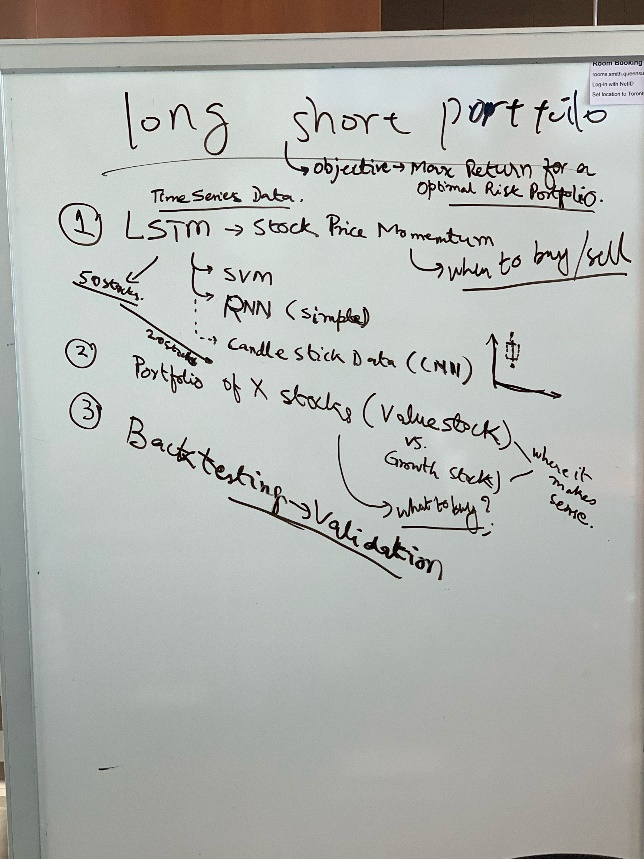 Room Booking
rooms.smith.queensu
Log-in with NetID
Set location to Toront
long short portfilo
objective → Max Return for a
Optimal Risk Portfolio.
Time Series Data.
① LSTM → Stock Price Momentum
when to buy/sell
50 stocks.
SVM
RNN (simple)
20 stocks
candle stick Data (CNN)
② Portfolio of X stocks (Value stock)
vs.
Growth stock)
where it
makes
sense.
what to buy?
③ Backtesting → Validation